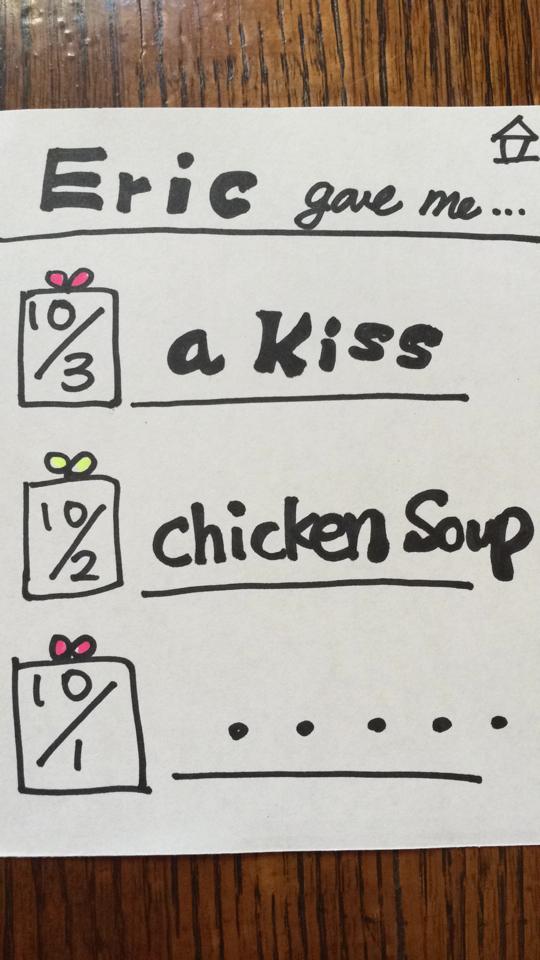 Eric gave me...
10/3 a Kiss
10/2 chicken Soup
10/1 • • • • •